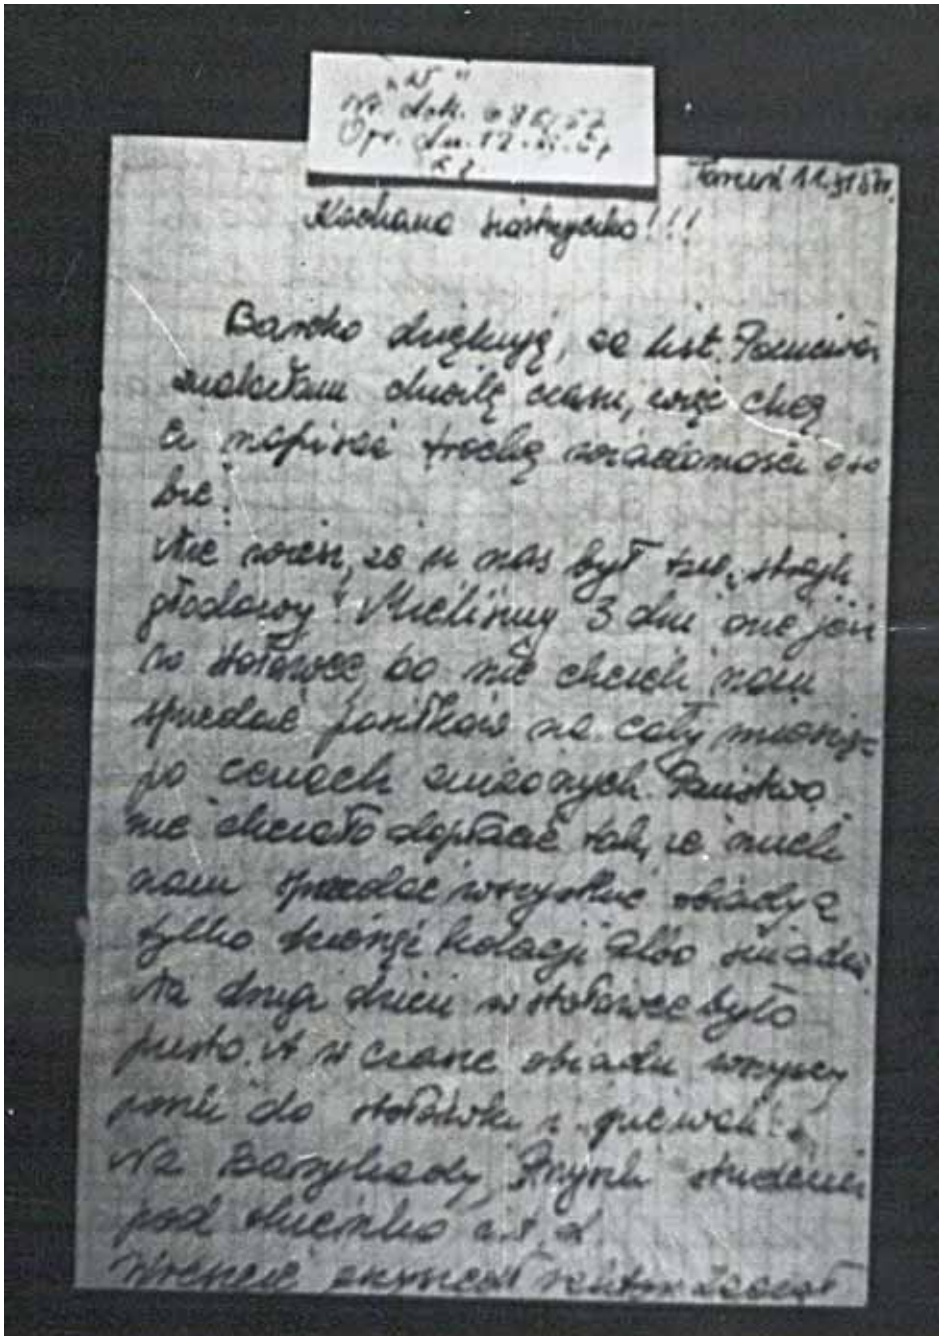 „W”
Nr. dok.
Opr. dn. 12.XI.57
Toruń 11.XI 57r.
Kochana siostrzyczko!!!
Bardzo dziękuję, za list. Ponieważ
znalazłam chwilę czasu, więc chcę
Ci napisać trochę wiadomości o so
bie.
Nie wiesz, że u nas był tzw. „strajk
głodowy”. Mieliśmy 3 dni
w stołówce, bo nie chcieli nam
sprzedać posiłków na cały miesiąc
po cenach zniżonych. Państwo
nie chciało dopłacać tak, że mieli
nam sprzedać wszystkie obiady a
tylko kolacji albo śniadań.
Na drugi dzień w stołówce było
pusto. A w czasie obiadu wszyscy
poszli do stołówki i śpiewali:
Na Barykady,
pod i.t.d
Wreszcie przyszedł rektor zaczął